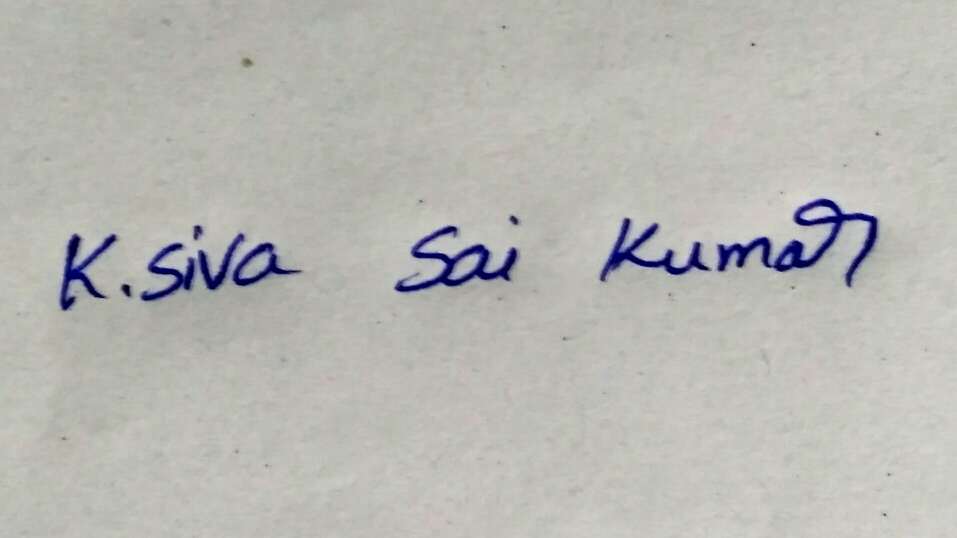 K. Siva Sai Kumar